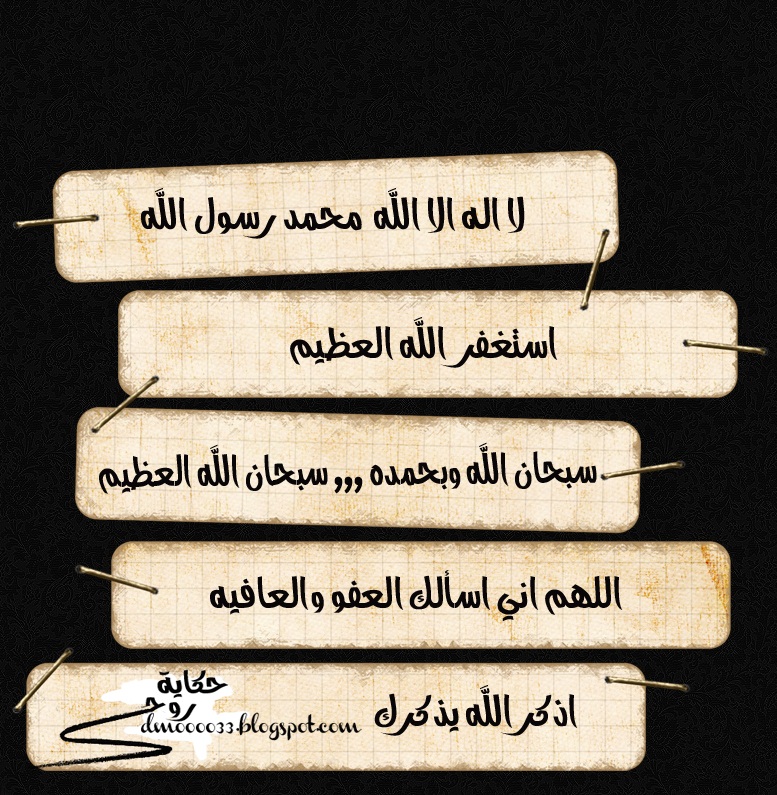 لا اله الا الله محمد رسول الله
استغفر الله العظيم
سبحان الله وبحمده ,,, سبحان الله العظيم
اللهم اني اسألك العفو والعافيه
اذكر الله يذكرك
حكاية
روح
dm00033.blogspot.com